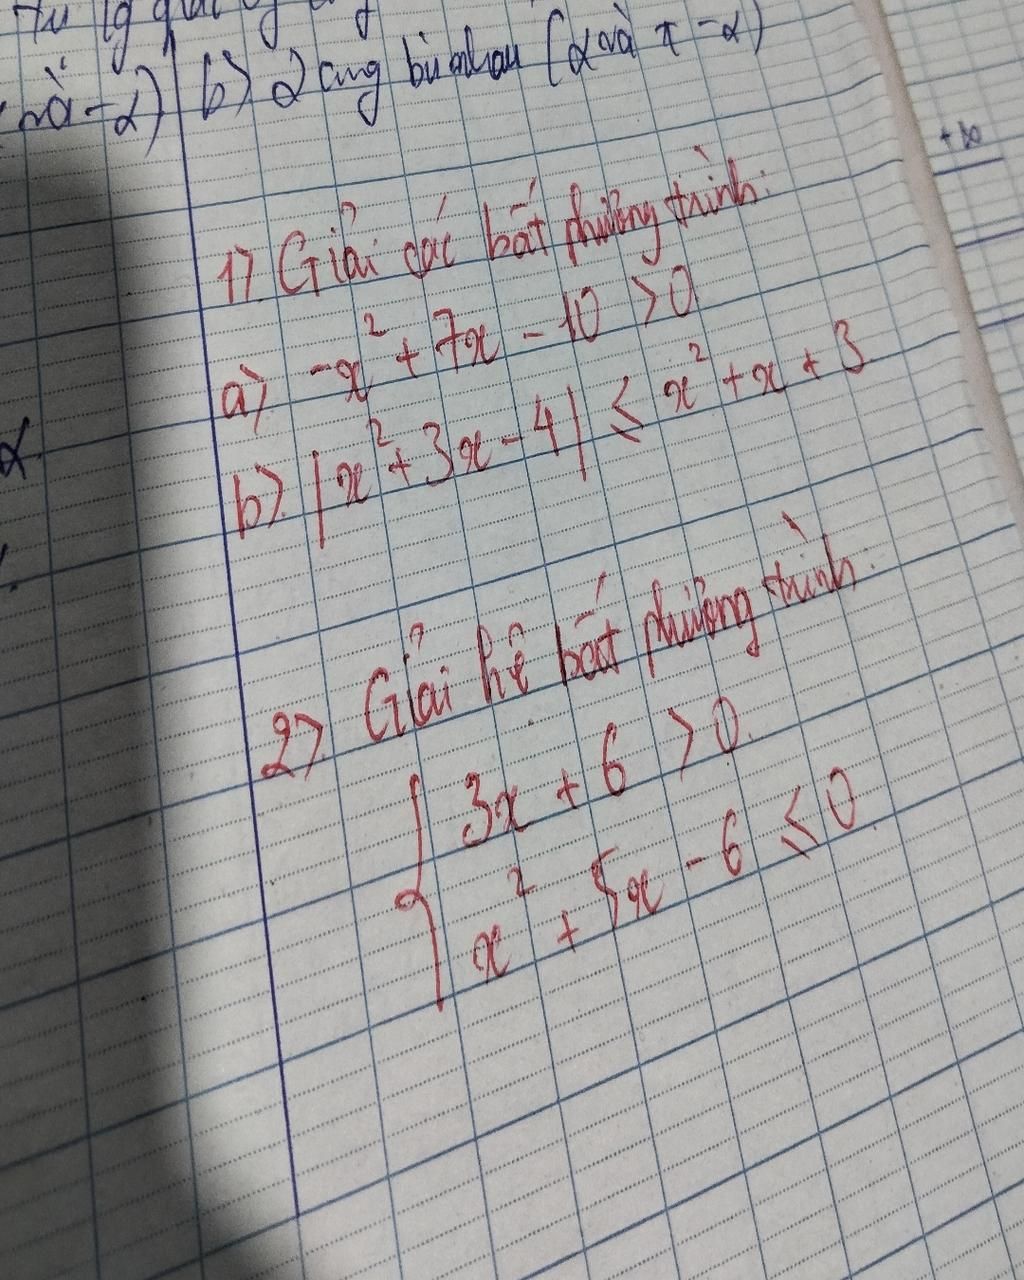 và -α) b) 2 cung bù nhau (α và π -α)
+∞
1) Giải các bất phương trình:
a) -x² + 7x - 10 > 0
b) |x² + 3x - 4| ≤ x² + x + 3
α
2) Giải hệ bất phương trình:
{ 3x + 6 > 0
x² + 5x - 6 ≤ 0